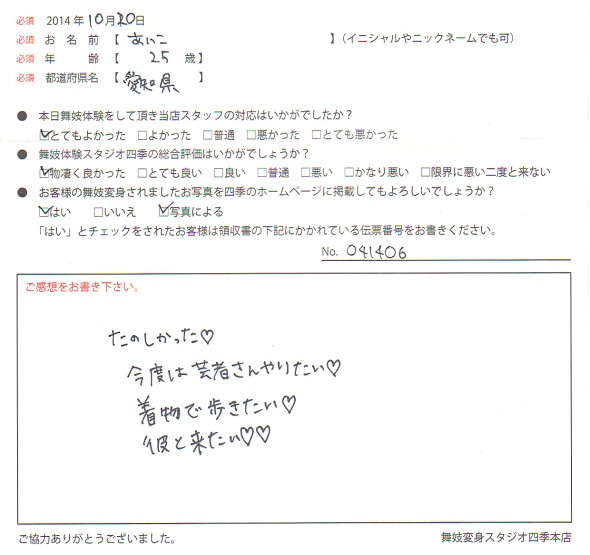 必須 2014年10月20日
必須 お名前【 あいこ 】(イニシャルやニックネームでも可)
必須 年齢【 25 歳】
必須 都道府県名【 愛知県 】
● 本日舞妓体験をして頂き当店スタッフの対応はいかがでしたか?
☑とてもよかった □よかった □普通 □悪かった □とても悪かった
● 舞妓体験スタジオ四季の総合評価はいかがでしょうか?
☑物凄く良かった □とても良い □良い □普通 □悪い □かなり悪い □限界に悪い二度と来ない
● お客様の舞妓変身されましたお写真を四季のホームページに掲載してもよろしいでしょうか?
☑はい □いいえ ☑写真による
「はい」とチェックをされたお客様は領収書の下記にかかれている伝票番号をお書きください。
No. 041406
ご感想をお書き下さい。
たのしかった♡
今度は芸者さんやりたい♡
着物で歩きたい♡
彼と来たい♡♡
ご協力ありがとうございました。 舞妓変身スタジオ四季本店